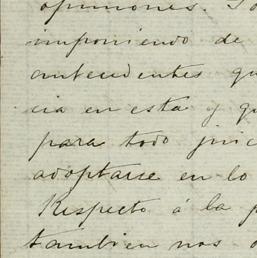 opiniones. To
imponiendo de
antecedentes qu
cia en esta y qu
para todo juic
adoptarse en lo
Respecto á la p
tambien nos o